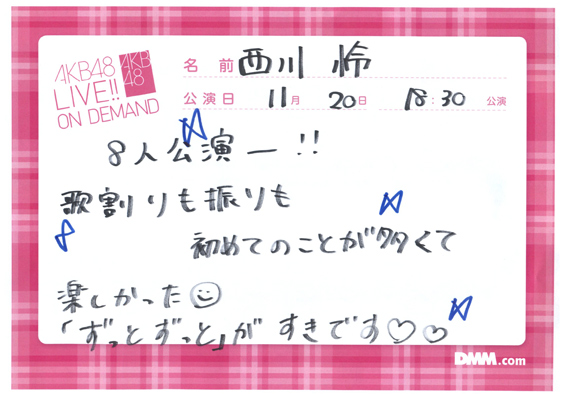 AKB48
LIVE!!
ON DEMAND
AKB
48
名前 西川 怜
公演日 11月 20日 18:30 公演
8人公演ー!!
歌割りも振りも
初めてのことが多くて
楽しかった
「ずっとずっと」が すきです♡♡
DMM.com